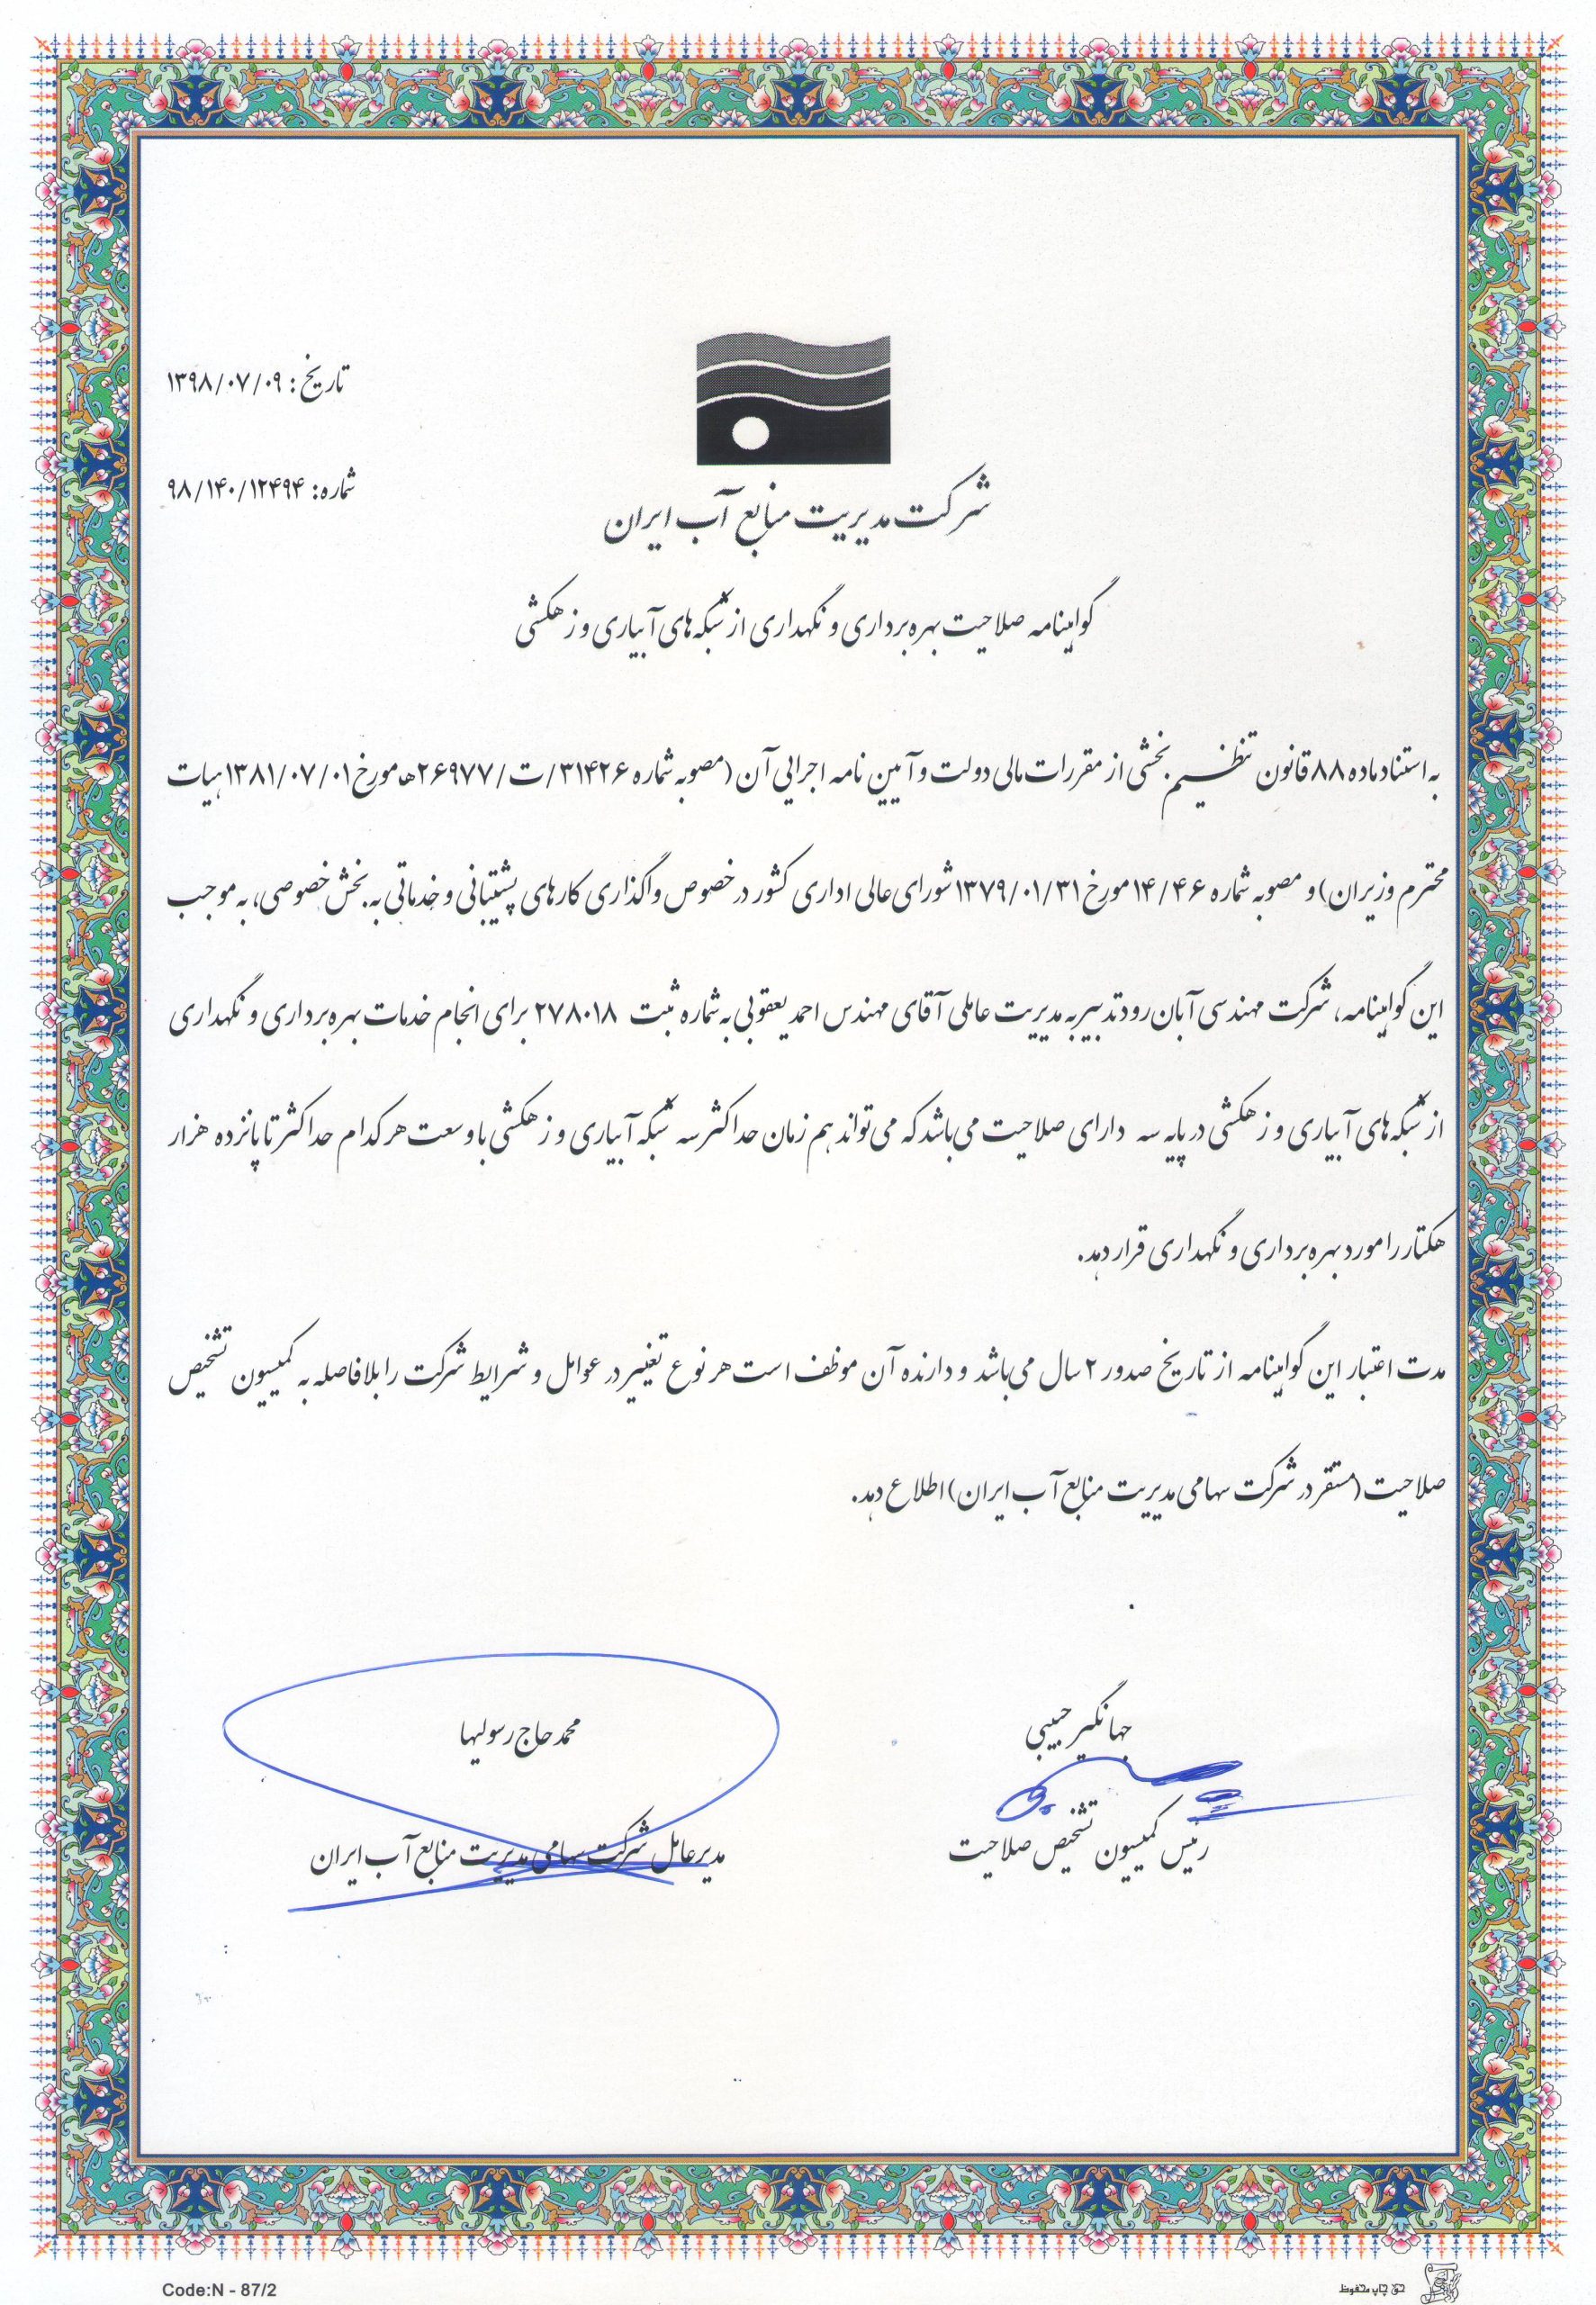 تاریخ: ۱۳۹۸/۰۷/۰۹
شماره: ۹۸/۱۴۰/۱۲۴۹۴
شرکت مدیریت منابع آب ایران
گواهینامه صلاحیت بهره برداری و نگهداری از شبکه های آبیاری و زهکشی
به استناد ماده ۸۸ قانون تنظیم بخشی از مقررات مالی دولت و آیین نامه اجرایی آن (مصوبه شماره ۳۱۴۲۶/ت/۲۶۹۷۷ه مورخ ۱۳۸۱/۰۷/۰۱ هیات
محترم وزیران) و مصوبه شماره ۱۴/۴۶ مورخ ۱۳۷۹/۰۱/۳۱ شورای عالی اداری کشور در خصوص واگذاری کارهای پشتیبانی و خدماتی به بخش خصوصی، به موجب
این گواهینامه، شرکت مهندسی آبان رود تدبیر به مدیریت عاملی آقای مهندس احمد یعقوبی به شماره ثبت ۲۷۸۰۱۸ برای انجام خدمات بهره برداری و نگهداری
از شبکه های آبیاری و زهکشی در پایه سه دارای صلاحیت می باشد که می تواند هم زمان حداکثر سه شبکه آبیاری و زهکشی با وسعت هر کدام حداکثر تا پانزده هزار
هکتار را مورد بهره برداری و نگهداری قرار دهد.
مدت اعتبار این گواهینامه از تاریخ صدور ۲ سال می باشد و دارنده آن موظف است هر نوع تغییر در عوامل و شرایط شرکت را بلافاصله به کمیسیون تشخیص
صلاحیت (مستقر در شرکت سهامی مدیریت منابع آب ایران) اطلاع دهد.
جهانگیر حبیبی
رئیس کمیسیون تشخیص صلاحیت
محمد حاج رسولیها
مدیرعامل شرکت سهامی مدیریت منابع آب ایران
Code:N - 87/2
حق چاپ محفوظ